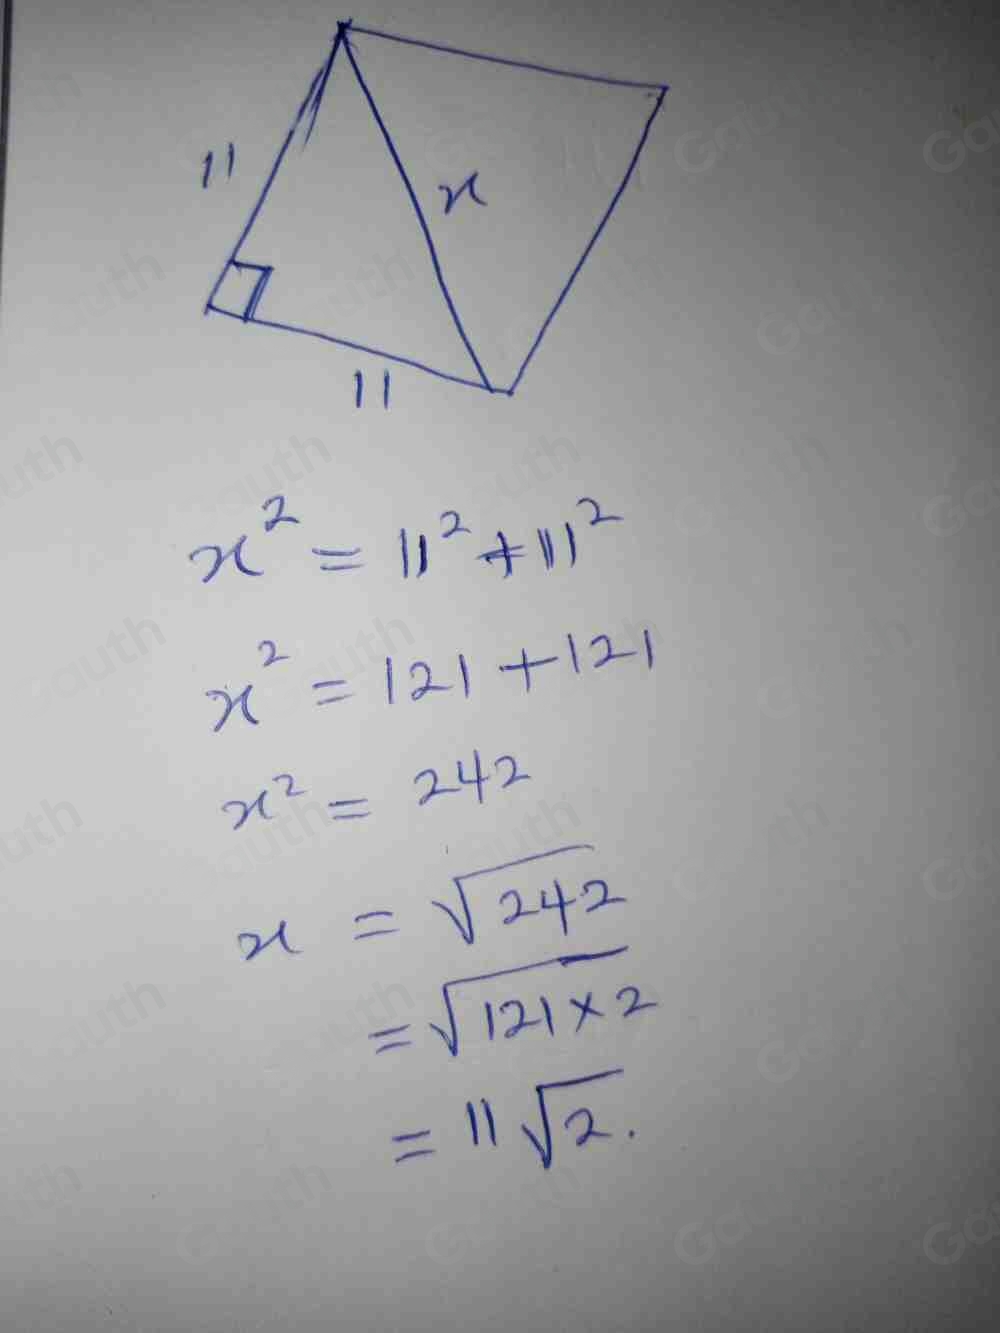 11
x
11
x² = 11² + 11²
x² = 121 + 121
x² = 242
x = √242
= √121 × 2
= 11√2.